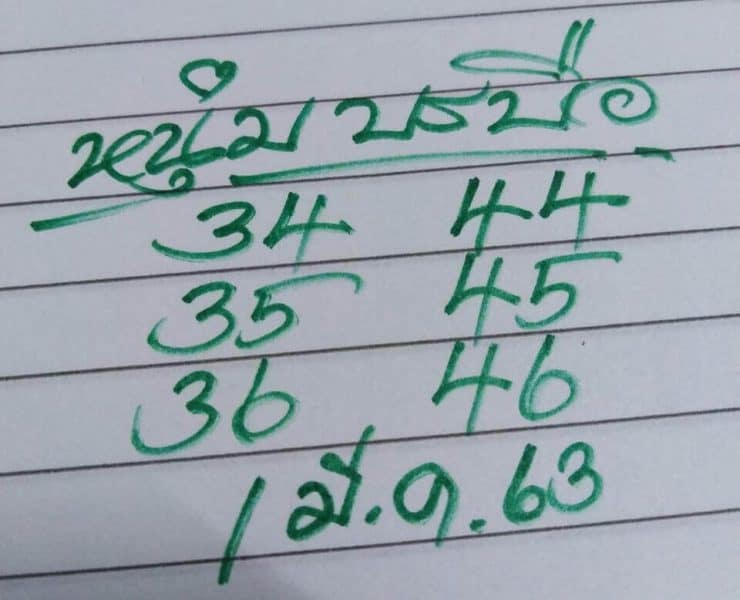 หนุ่ม บรบือ
34 44
35 45
36 46
1 มี.ค.63